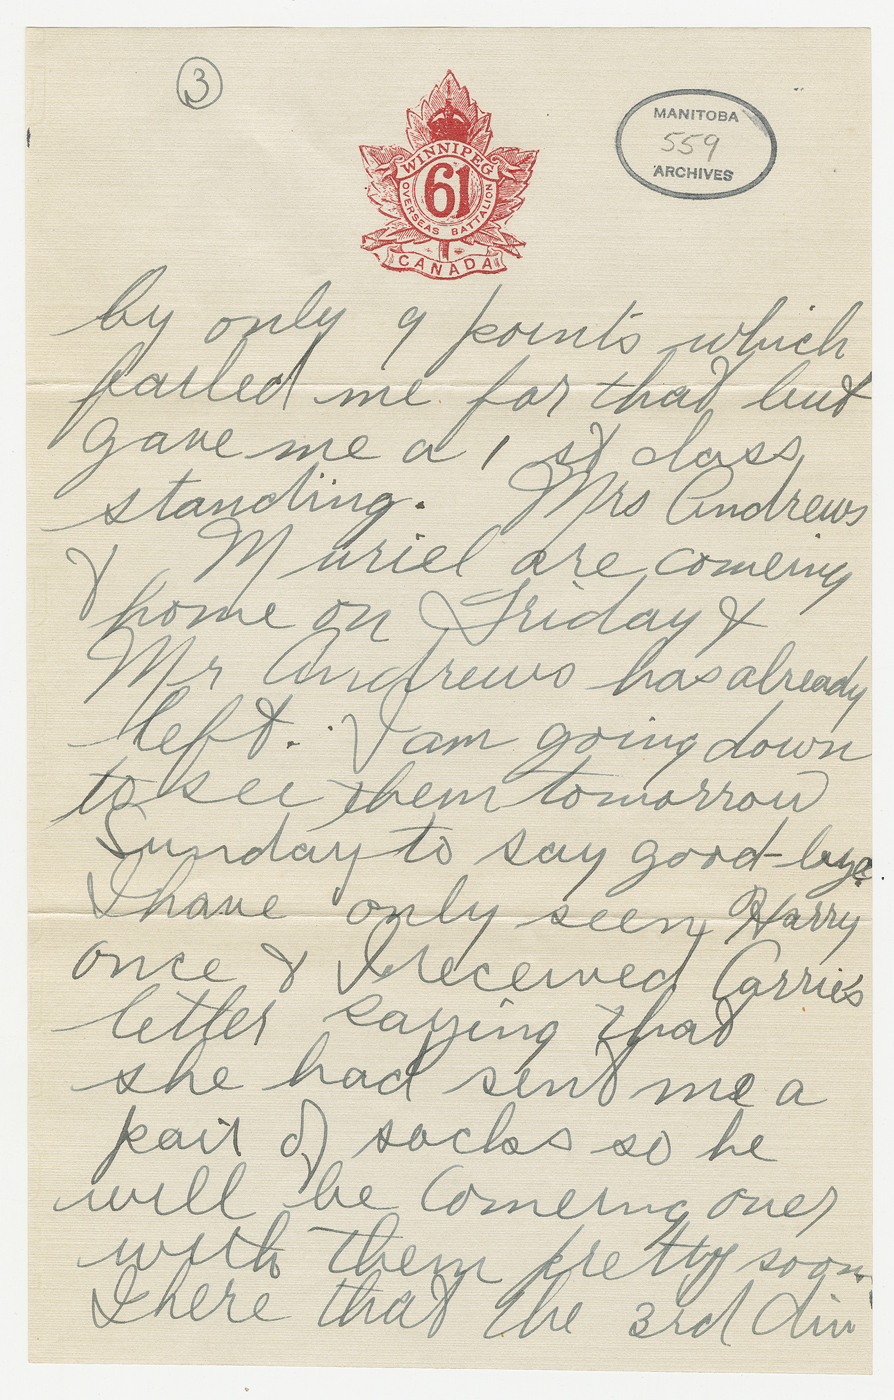 3
WINNIPEG
61
OVERSEAS BATTALION
CANADA
MANITOBA
559
ARCHIVES
by only 9 points which
failed me for that but
gave me a 1 st class
standing. Mrs Andrews
& Muriel are comeing
home on Friday &
Mr Andrews has already
left. I am going down
to see them tomorrow
Sunday to say good-bye.
I have only seen Harry
once & I received Carries
letter saying that
she had sent me a
pair of socks so he
will be comeing over
with them pretty soon.
I here that the 3rd div